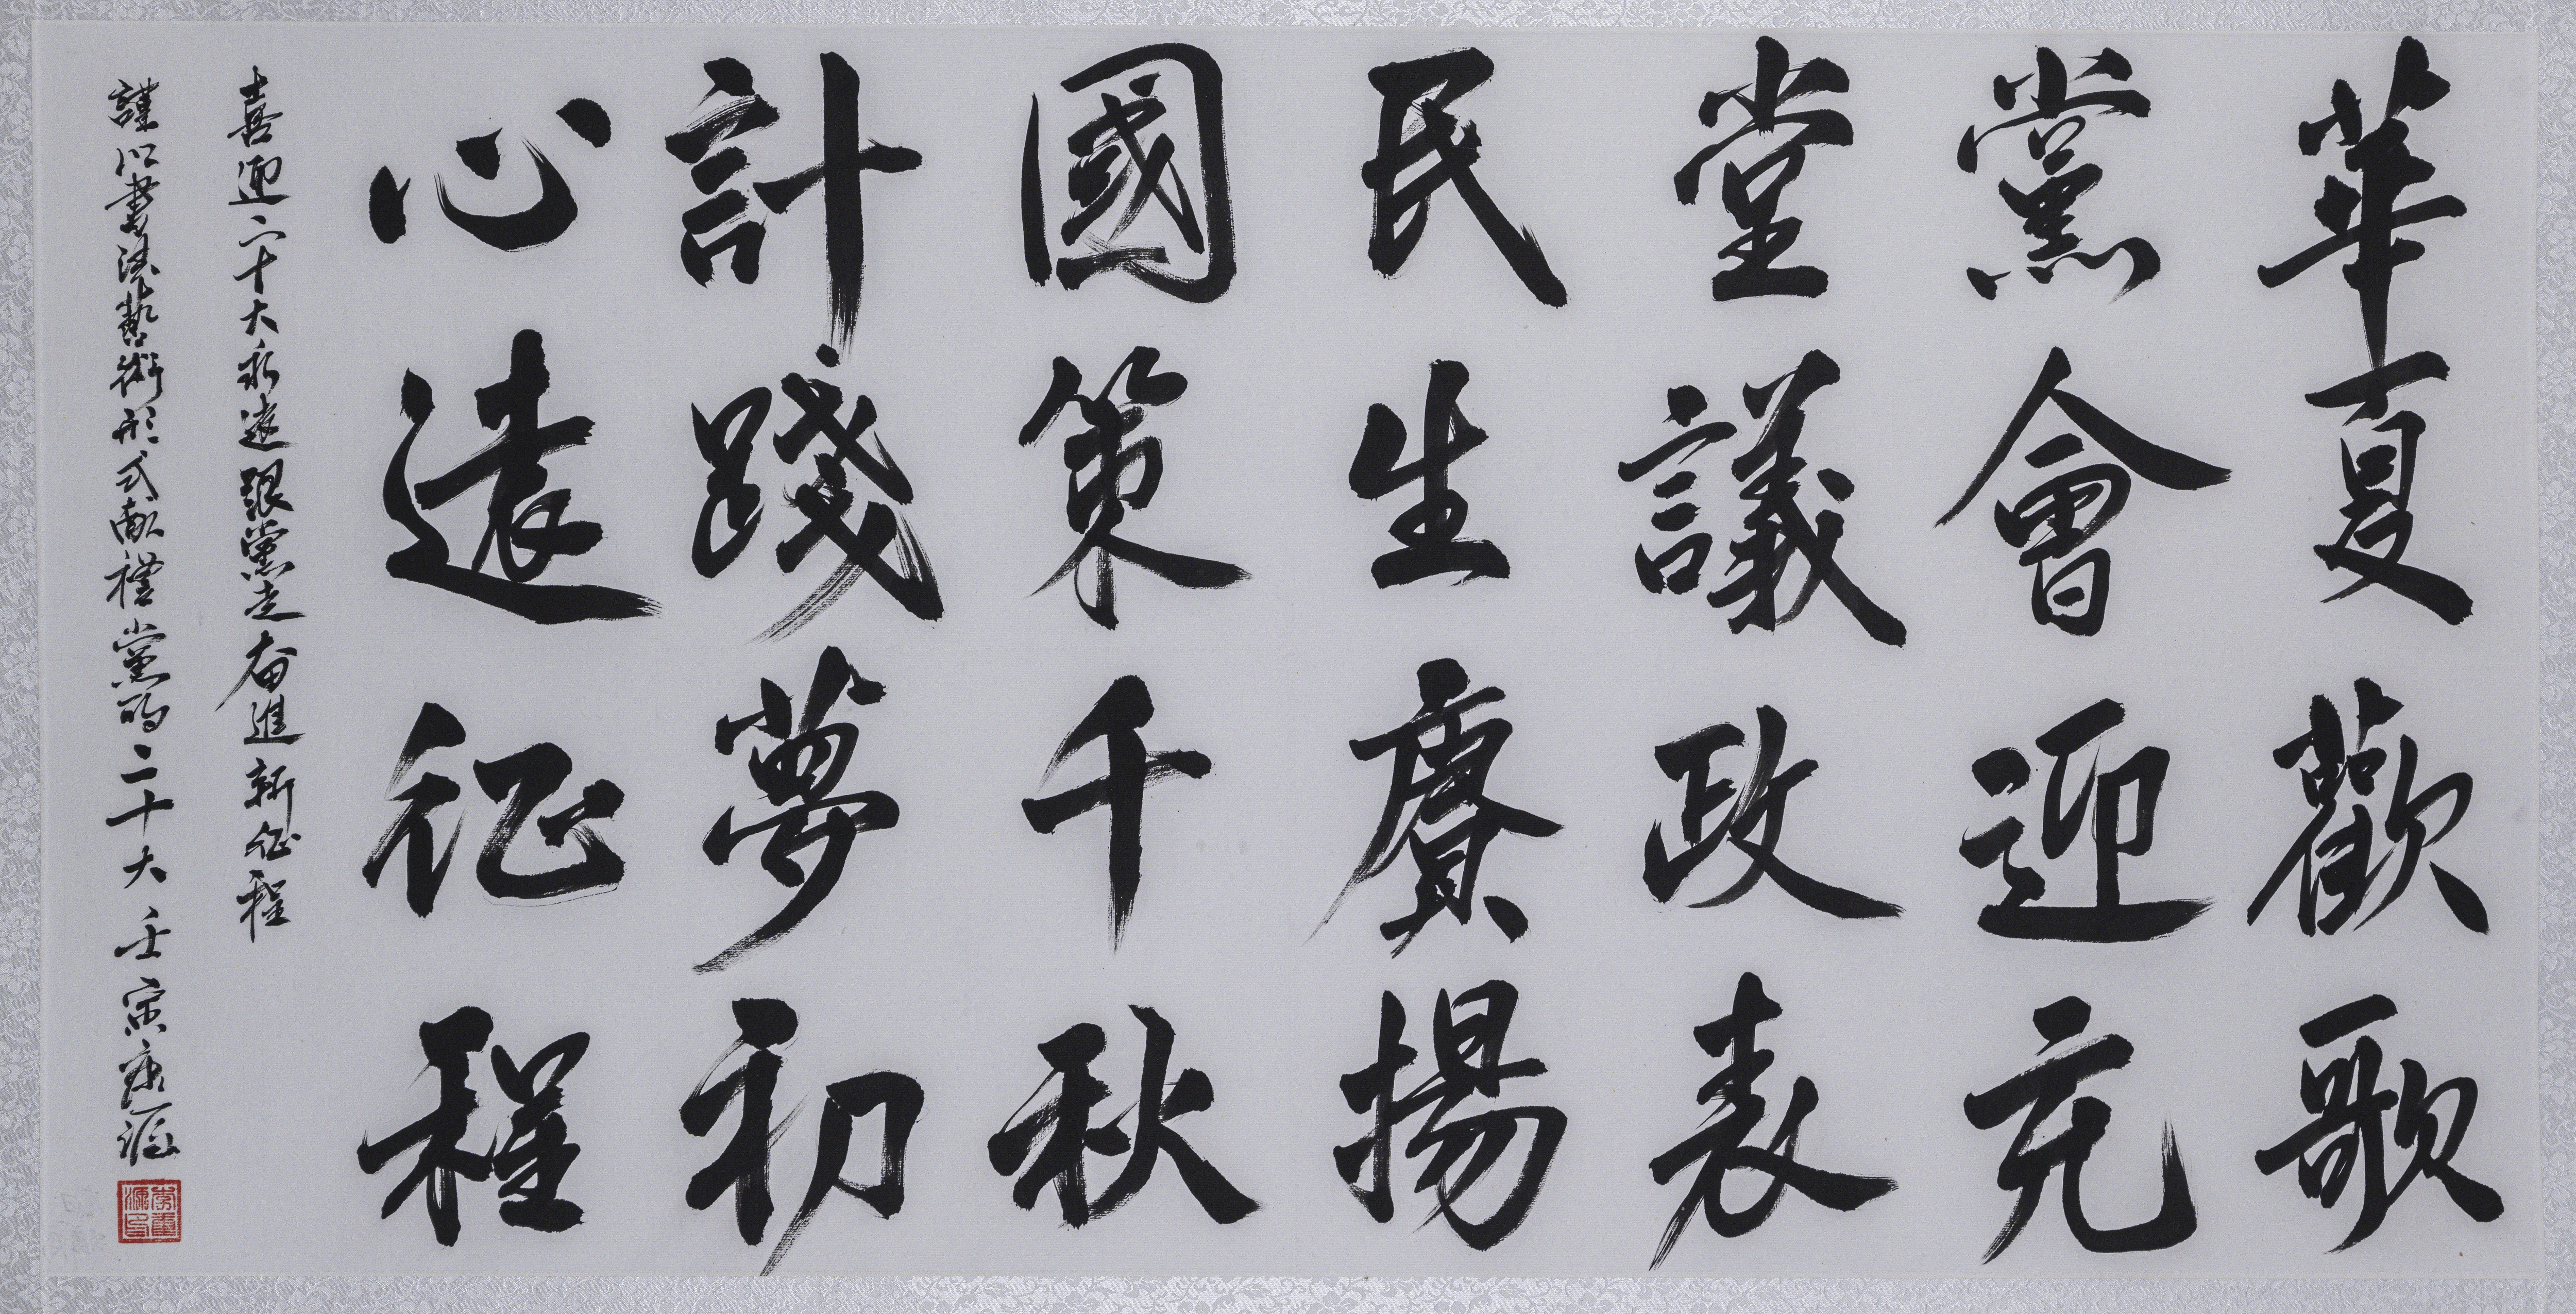 華夏歡歌
黨會迎充
堂議政表
民生賡揚
國策千秋
計踐夢初
心遠征程
喜迎二十大永遠跟黨走奋進新征程
謹以書法藝術形式献禮黨的二十大壬寅